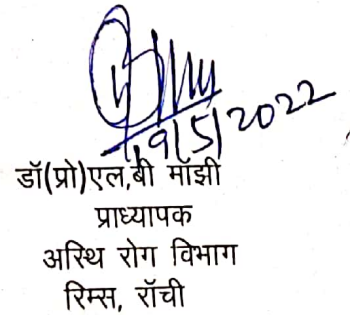 19/5/2022
डॉ(प्रो)एल,बी मॉझी
प्राध्यापक
अस्थि रोग विभाग
रिम्स, रॉची